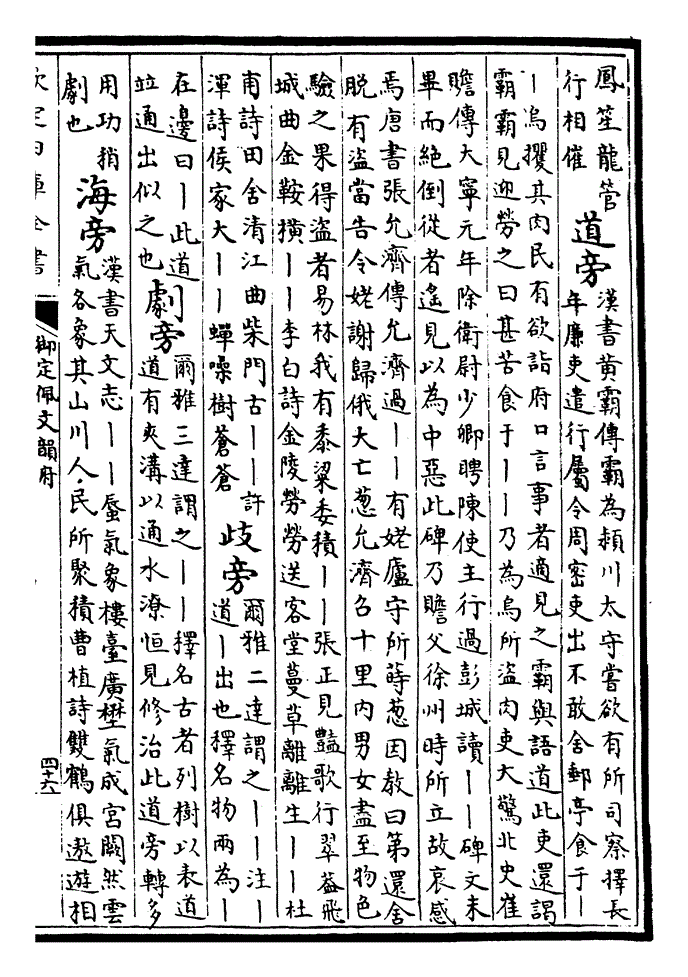 鳳笙龍管
行相催
道旁
漢書黃霸傳霸為潁川太守嘗欲有所司察擇長
年廉吏遣行屬令周密吏出不敢舍郵亭食于丨
丨烏攫其肉民有欲詣府口言事者適見之霸與語道此吏還謁
霸霸見迎勞之曰甚苦食于丨丨乃為烏所盜肉吏大驚北史崔
贍傳大寧元年除衛尉少卿聘陳使主行過彭城讀丨丨碑文未
畢而絕倒從者遙見以為中惡此碑乃贍父徐州時所立故哀感
焉唐書張允濟傳允濟過丨丨有姥廬守所蒔葱因教曰第還舍
脱有盜當告令姥謝歸俄大亡葱允濟召十里内男女盡至物色
驗之果得盜者易林我有黍粱委積丨丨張正見豔歌行翠蓋飛
城曲金鞍横丨丨李白詩金陵勞勞送客堂蔓草離離生丨丨杜
甫詩田舍清江曲柴門古丨丨許
渾詩侯家大丨丨蟬噪樹蒼蒼
歧旁
爾雅二達謂之丨丨注丨
道丨出也釋名物兩為丨
在邊曰丨此道
竝通出似之也
劇旁
爾雅三達謂之丨丨釋名古者列樹以表道
道有夾溝以通水潦恒見修治此道旁轉多
用功稍
劇也
海旁
漢書天文志丨丨蜃氣象樓臺廣壄氣成宮闕然雲
氣各象其山川人民所聚積曹植詩雙鶴俱遨遊相
欽定四庫全書
御定佩文韻府
四十六